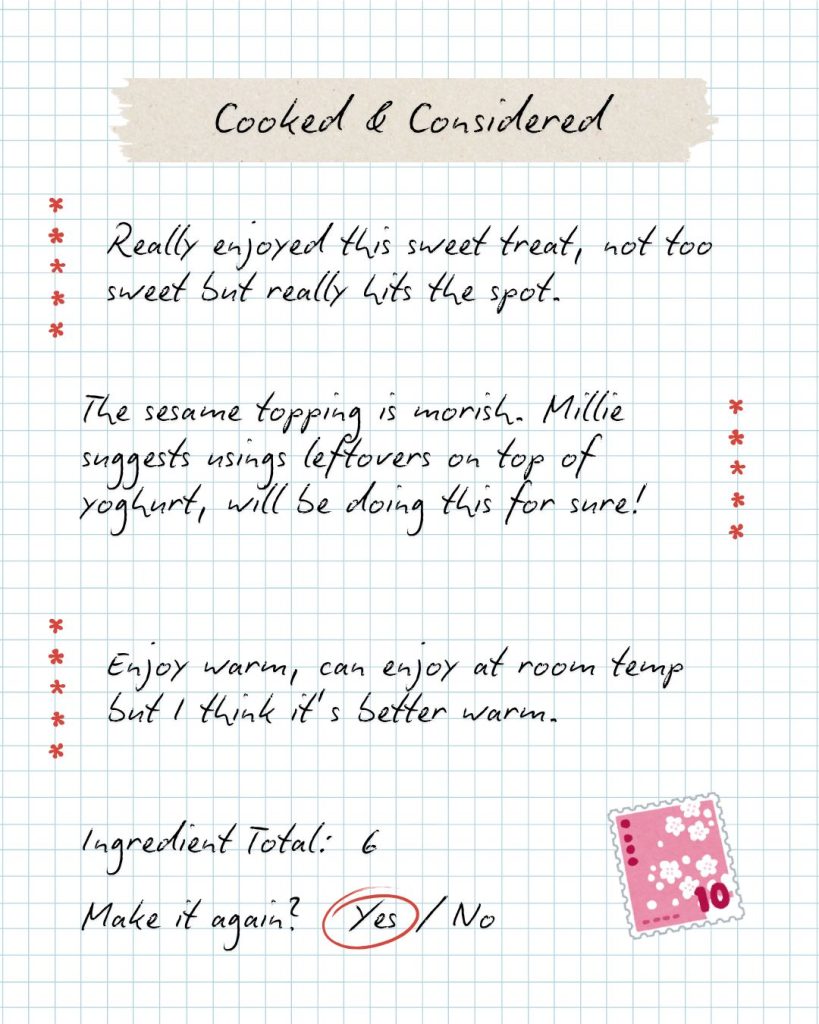 Cooked & Considered
Really enjoyed this sweet treat, not too
sweet but really hits the spot.
The sesame topping is morish. Millie
suggests usings leftovers on top of
yoghurt, will be doing this for sure!
Enjoy warm, can enjoy at room temp
but I think it's better warm.
Ingredient Total: 6
Make it again? Yes / No
10